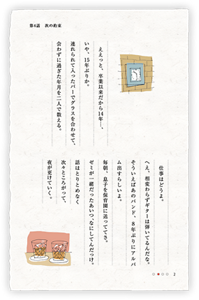 第4話　次の約束
ええっと、卒業以来だから14年…、
いや、15年ぶりか。
連れられて入ったバーでグラスを合わせて、
会わずに過ぎた年月を二人で数える。
仕事はどうよ。
へえ、相変わらずギターは弾いてるんだな。
そういえばあのバンド、8年ぶりにアルバ
ム出すらしいよ。
毎朝、息子を保育園に送ってってさ。
ゼミが一緒だったあいつ、なにしてんだっけ。
話はとりとめなく
次々ところがって、
夜が更けていく。
1